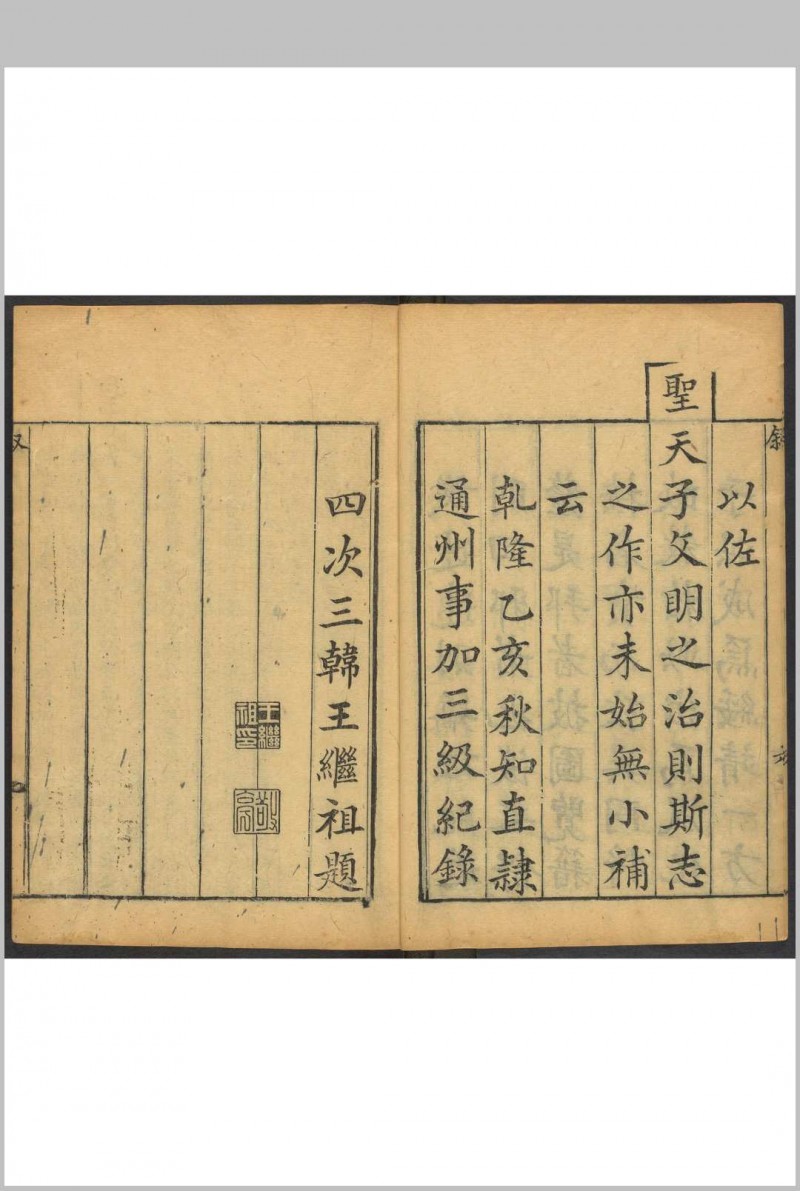 以佐
聖天子文明之治則斯志
之作亦未始無小補
云
乾隆乙亥秋知直隸
通州事加三級紀錄
四次三韓王繼祖題
王繼祖印